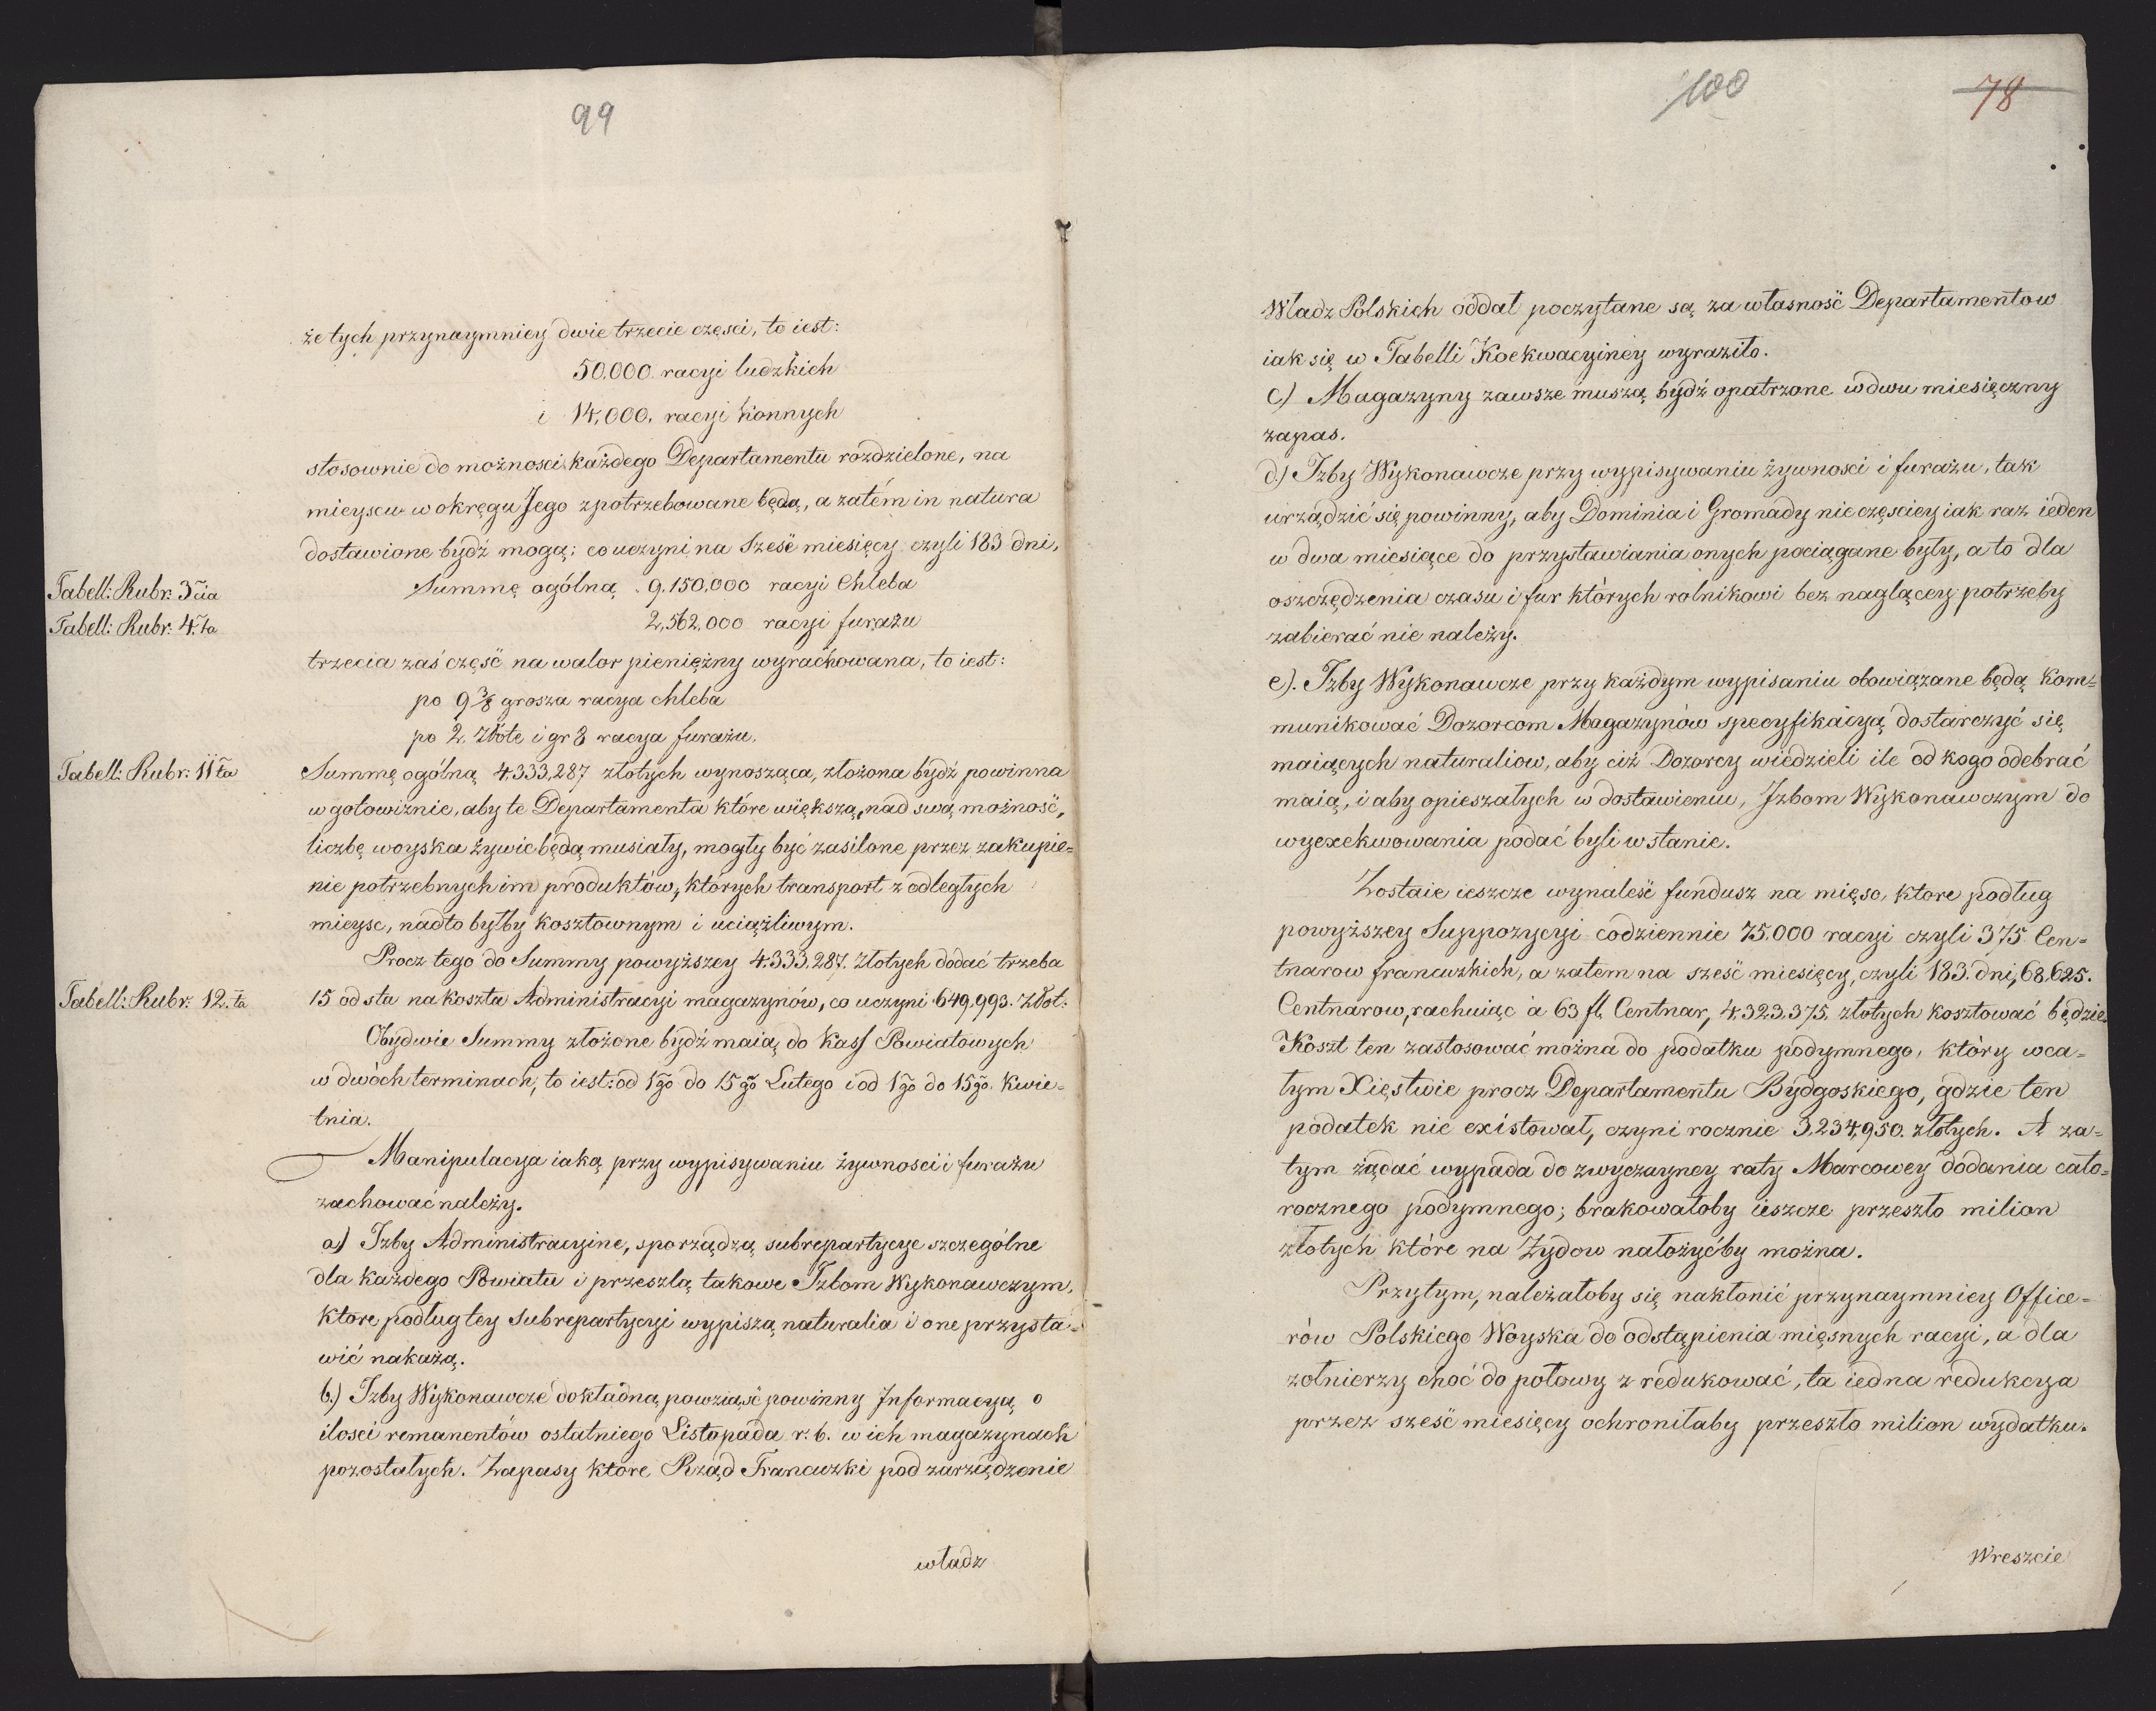 99
że tych przynaymniey dwie trzecie częsci, to iest:
50.000. racyi ludzkich
i 14,000. racyi konnych
stosownie do możnosci każdego Departamentu rozdzielone, na
mieyscu w okręgu Jego zpotrzebowane będą, a zatém in natura
dostawione bydź mogą; co uczyni na Sześć miesięcy czyli 183 dni,
Tabell: Rubr: 3cia Summę ogólną . 9,150,000 racyi Chleba
Tabell: Rubr: 4.ta 2,562,000 racyi furażu
trzecia zaś część na walor pieniężny wyrachowana, to iest:
po 9 3/8 grosza racya chleba
po 2. złote i gr 8 racya furażu.
Tabell: Rubr: 11ta Summę ogólną 4,333,287 złotych wynosząca, złożona bydź powinna
w gotowiznie, aby te Departamenta które większą, nad swą możność,
liczbę woyska żywic będą musiały, mogły być zasilone przez zakupie=
nie potrzebnych im produktów, których transport z odległych
mieysc, nadto byłby kosztownym i uciążliwym.
Procz tego do Summy powyższey 4.333.287. złotych dodać trzeba
Tabell: Rubr: 12.ta 15 od sta na koszta Administracyi magazynów, co uczyni 649,993. złot:
Obydwie Summy złożone bydź maią do Kass Powiatowych
w dwóch terminach, to iest: od 1go do 15go Lutego i od 1go do 15go. Kwie=
tnia.
Manipulacya iaką przy wypisywaniu żywnosci i furażu
zachować należy.
a) Izby Administracyine, sporządzą subrepartycye szczególne
dla każdego Powiatu i przeszlą takowe Izbom Wykonawczym,
ktore podług tey subrepartycyi wypiszą naturalia i one przysta=
wić nakażą.
b.) Izby Wykonawcze dokładną powziąść powinny Informacyą o
ilosci remanentów ostatniego Listopada r. b. w ich magazynach
pozostałych. Zapasy ktore Rząd Francuzki pod zarządzenie
władz
100
78
Władz Polskich oddał poczytane są za własność Departamentow
iak się w Tabelli Koekwacyiney wyraziło.
c) Magazyny zawsze muszą bydź opatrzone w dwu miesięczny
zapas.
d.) Izby Wykonawcze przy wypisywaniu żywnosci i furażu, tak
urządzić się powinny, aby Dominia i Gromady nie częsciey iak raz ieden
w dwa miesiące do przystawiania onych pociągane były, a to dla
oszczędzenia czasu i fur których rolnikowi bez naglącey potrzeby
zabierać nie należy.
e). Izby Wykonawcze przy każdym wypisaniu obowiązane będą kom=
munikować Dozorcom Magazynów specyfikacyą dostarczyć się
maiących naturaliow, aby ciż Dozorcy wiedzieli ile od kogo odebrać
maią, i aby opieszałych w dostawieniu, Izbom Wykonawczym do
wyexekwowania podać byli w stanie.
Zostaie ieszcze wynaleść fundusz na mięso, ktore podług
powyższey Suppozycyi codziennie 75,000 racyi czyli 375 Cen=
tnarow francuzkich, a zatem na sześć miesięcy, czyli 183. dni, 68.625.
Centnarow, rachuiąc à 63 fl. Centnar, 4.323.375. złotych kosztować będzie.
Koszt ten zastosować można do podatku podymnego, który w ca=
łym Xięstwie procz Departamentu Bydgoskiego, gdzie ten
podatek nie existował, czyni rocznie 3,234,950. złotych. A za=
tym żądać wypada do zwyczayney raty Marcowey dodania cało=
rocznego podymnego; brakowałoby ieszcze przeszło milion
złotych które na Żydow nałożyćby można.
Przytym, należałoby się nakłonić przynaymniey Office=
rów Polskiego Woyska do odstąpienia mięsnych racyi, a dla
żołnierzy choć do połowy z redukować, ta iedna redukcya
przez sześć miesięcy ochroniłaby przeszło milion wydatku.
Wreszcie